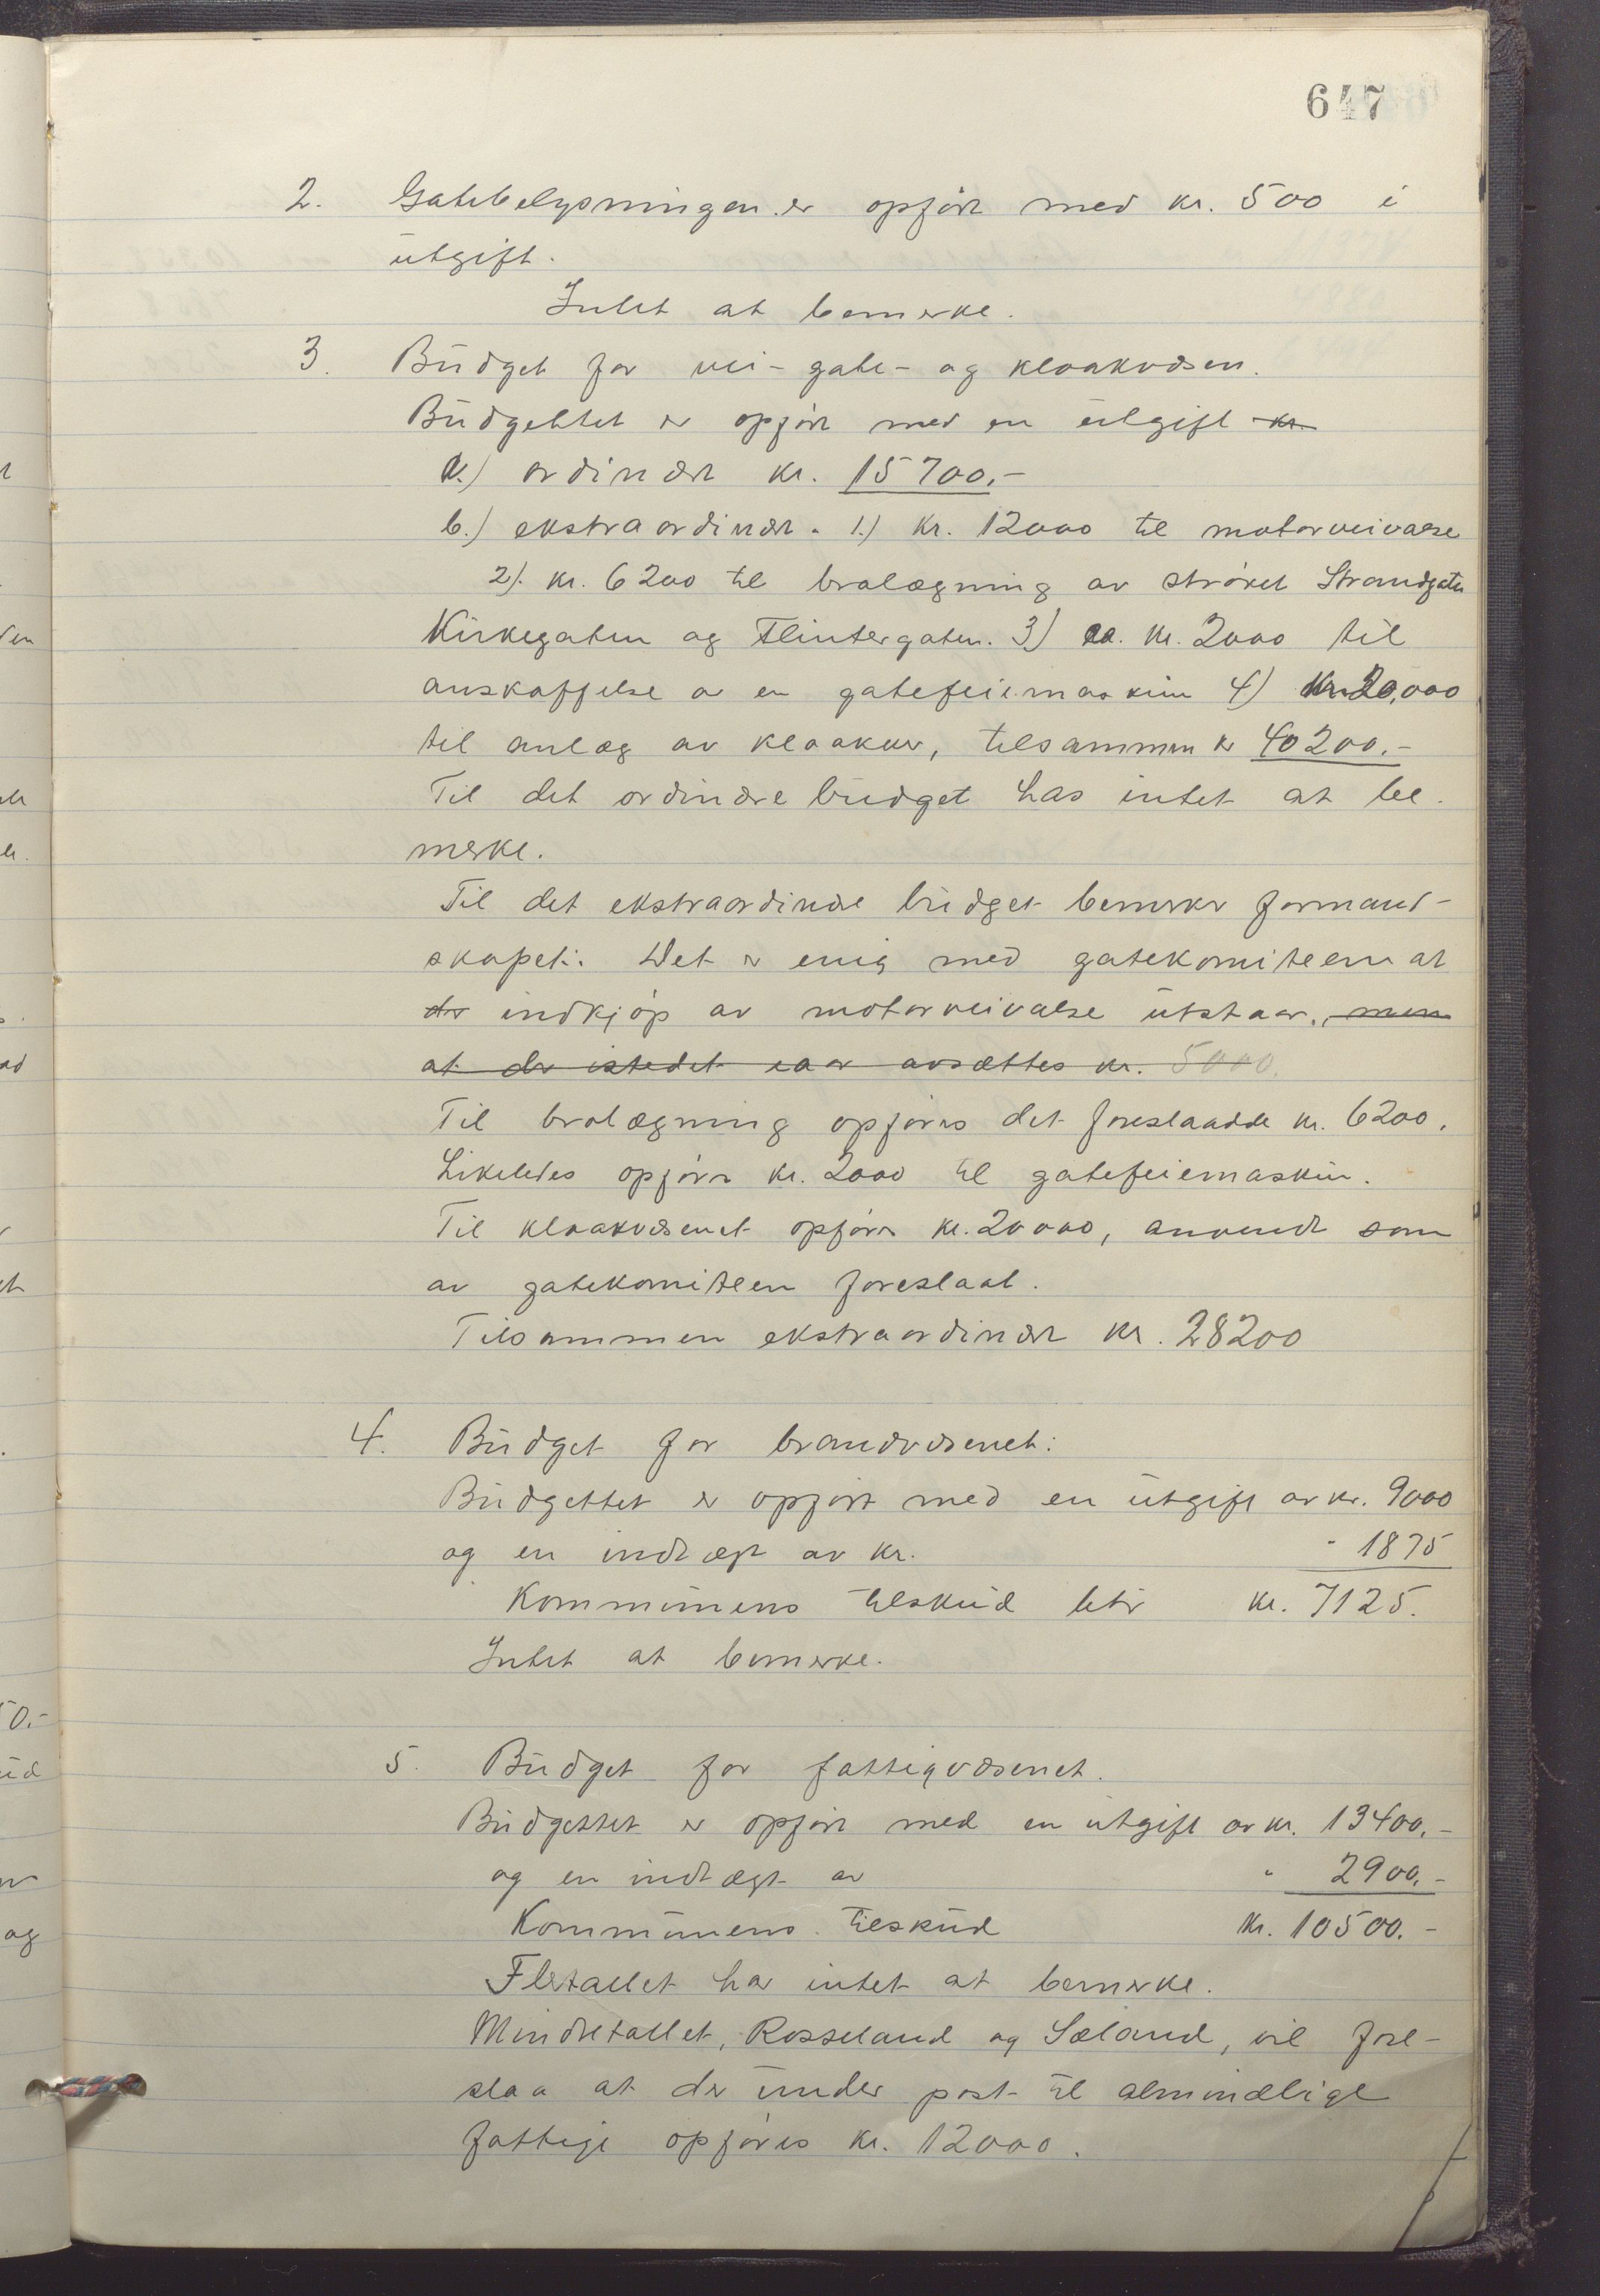 647
2. Gatebelysningen er opført med kr. 500 i
utgift.
Intet at bemerke.
3. Budget for vei- gate- og kloakvæsen.
Budgettet er opført med en utgift kr.
a.) ordinært kr. 15700.-
b.) ekstraordinært. 1.) kr. 12000 til motorveivalse
2). kr. 6200 til brolægning av strøket Strandgaten
Kirkegaten og Flintergaten. 3) ca. kr. 2000 til
anskaffelse av en gatefeiemaskin 4) kr. 20,000
til anlæg av kloakker, tilsammen kr 40200.-
Til det ordinære budget has intet at be-
merke.
Til det ekstraordinære budget bemerker formand-
skapet: Det er enig med gatekomiteen at
der indkjøp av motorveivalse utstaar, men
at der istedet iaar avsættes kr. 5000.
Til brolægning opføres det foreslaadde kr. 6200.
Likeledes opføres kr. 2000 til gatefeiemaskin.
Til kloakvæsenet opføres kr. 20000, anvendt som
av gatekomiteen foreslaat.
Tilsammen ekstraordinært kr. 28200
4. Budget for brandvæsenet:
Budgettet er opført med en utgift av kr. 9000
og en indtægt av kr. " 1875
Kommunens tilskud blir kr. 7125.
Intet at bemerke.
5. Budget for fattigvæsenet.
Budgettet er opført med en utgift av kr. 13400.-
og en indtægt av " 2900.-
Kommunens tilskud kr. 10500.-
Flertallet har intet at bemerke.
Mindretallet, Rosseland og Sæland, vil fore-
slaa at der under post til almindelige
fattige opføres kr. 12000.